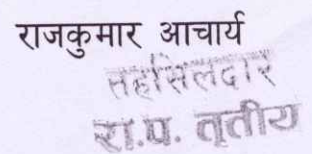 राजकुमार आचार्य
तहसिलदार
रा.प. तृतीय